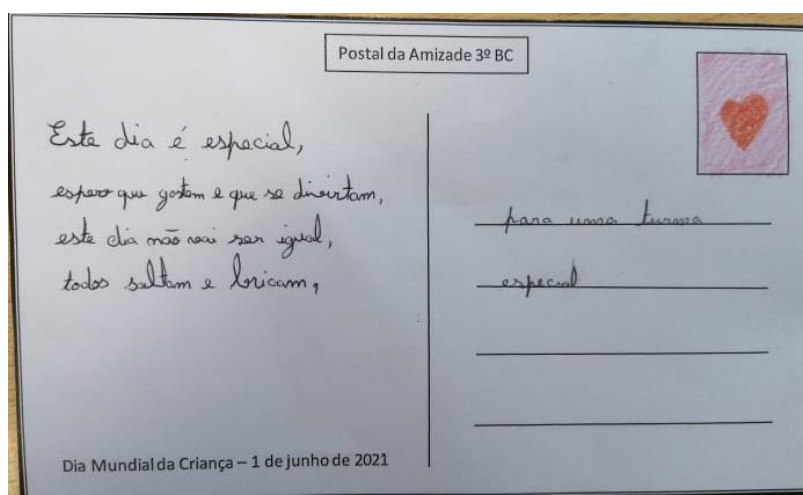 Postal da Amizade 3º BC
Este dia é especial,
espero que gostem e que se divirtam,
este dia não vai ser igual,
todos saltam e bricam,
para uma turma
especial
Dia Mundial da Criança – 1 de junho de 2021